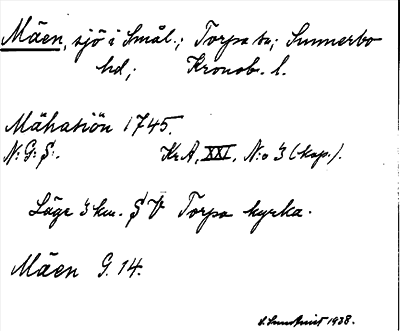 Måen, sjö i Smål.; Torpa sn; Sunnerbo
hd; Kronob. l.
Måhasiön 1745.
N: G: S:. KrA, XXI, N:o 3 (kop.).
Läge 3 km. SV Torpa kyrka.
Måen G. 14.
1938.